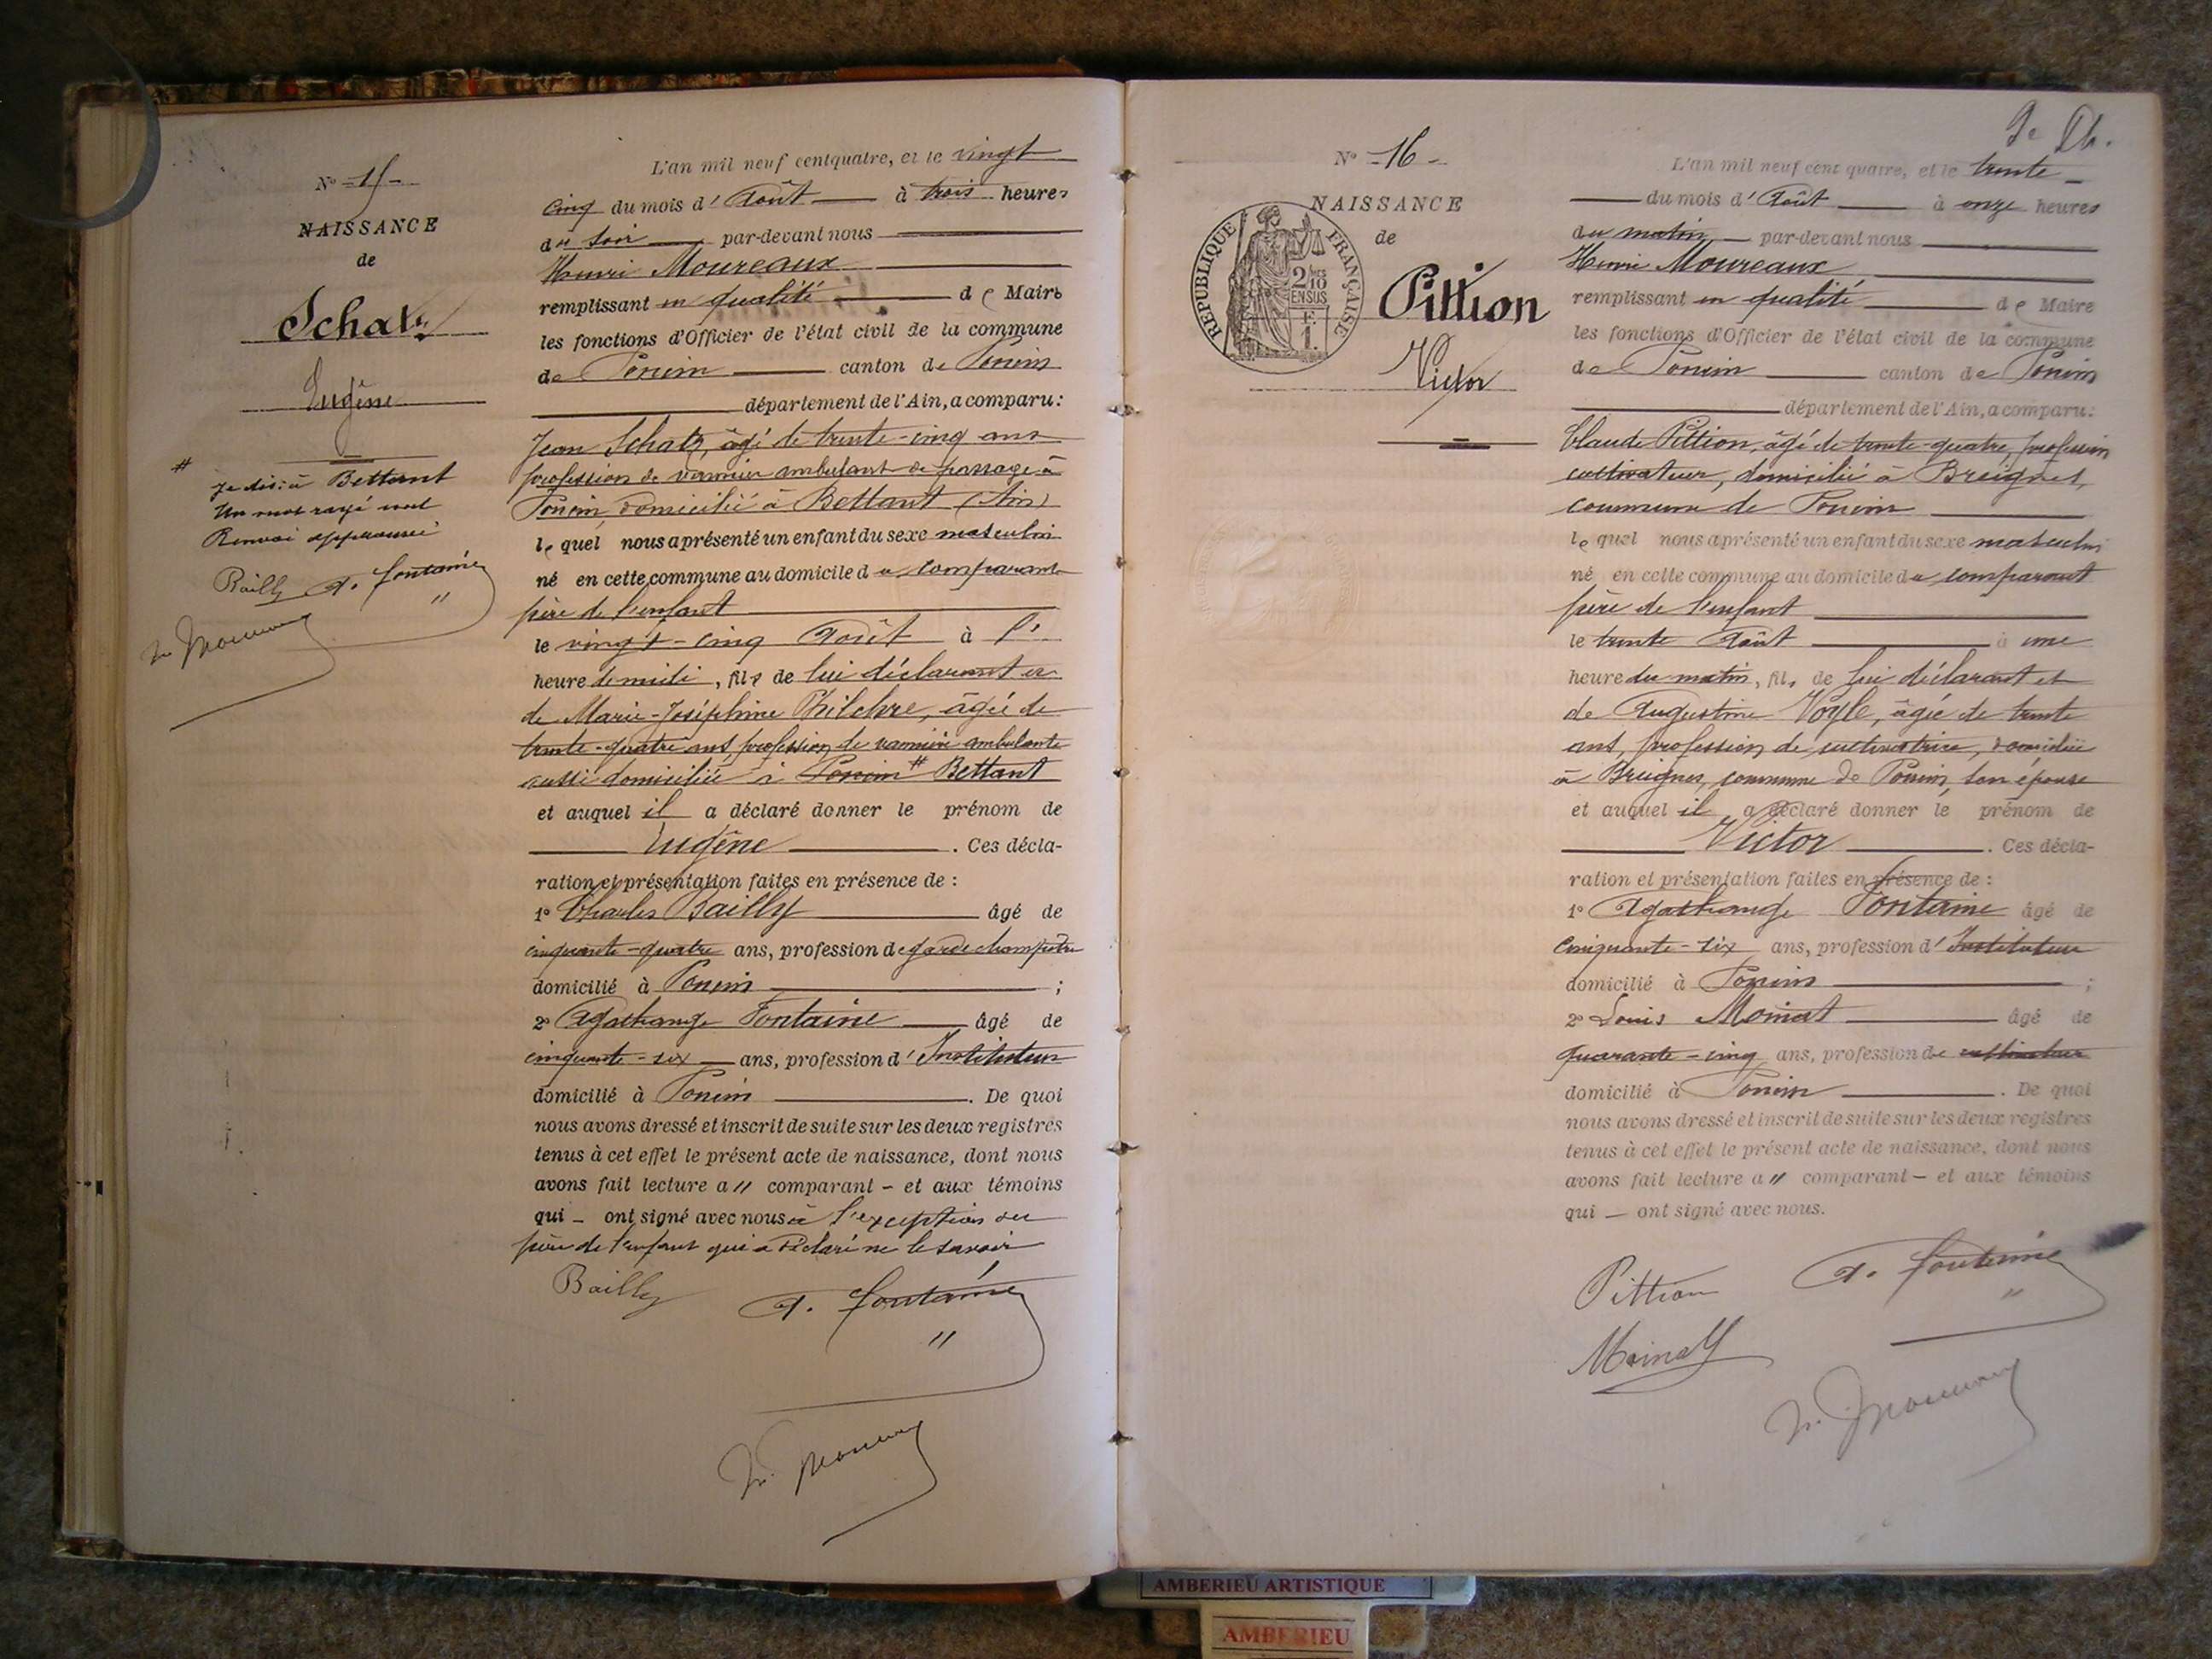 N° 15
NAISSANCE
de
Schatz
Eugène
# Je dis: à Bettant
Un mot rayé nul
Renvoi approuvé
Bailly A. Fontaine
L'an mil neuf cent quatre, et le vingt
cinq du mois d'Août à trois heures
du soir par-devant nous
Henri Moureaux
remplissant en qualité de Maire
les fonctions d'Officier de l'état civil de la commune
de Poncin canton de Poncin
département de l'Ain, a comparu:
Jean Schatz, âgé de trente-cinq ans
profession de vannier ambulant de passage à
Poncin domicilié à Bettant (Ain)
lequel nous a présenté un enfant du sexe masculin
né en cette commune au domicile du comparant
père de l'enfant
le vingt-cinq Août à l'
heure de midi, fils de lui déclarant et
de Marie-Joséphine, âgée de
trente-quatre ans, profession de vannière ambulante
aussi domiciliée à Poncin # Bettant
et auquel il a déclaré donner le prénom de
Eugène. Ces décla-
ration et présentation faites en présence de:
1° Charles Bailly âgé de
cinquante-quatre ans, profession de garde champêtre
domicilié à Poncin;
2° Agathange Fontaine âgé de
cinquante-six ans, profession d'Instituteur
domicilié à Poncin. De quoi
nous avons dressé et inscrit de suite sur les deux registres
tenus à cet effet le présent acte de naissance, dont nous
avons fait lecture a" comparant - et aux témoins
qui - ont signé avec nous à l'exception du
père de l'enfant qui a déclaré ne le savoir
Bailly A. Fontaine
N° 16
NAISSANCE
de
RÉPUBLIQUE FRANÇAISE
2/10 EN SUS
F 1.
Pittion
Victor
L'an mil neuf cent quatre, et le trente
du mois d'Août à onze heures
du matin par-devant nous
Henri Moureaux
remplissant en qualité de Maire
les fonctions d'Officier de l'état civil de la commune
de Poncin canton de Poncin
département de l'Ain, a comparu:
Claude Pittion, âgé de trente-quatre, profession
cultivateur, domicilié à Breignes,
commune de Poncin
lequel nous a présenté un enfant du sexe masculin
né en cette commune au domicile du comparant
père de l'enfant
le trente Août à une
heure du matin, fils de lui déclarant et
de Augustine, âgée de trente
ans, profession de cultivatrice, domiciliée
à Breignes, commune de Poncin, son épouse
et auquel il a déclaré donner le prénom de
Victor. Ces décla-
ration et présentation faites en présence de:
1° Agathange Fontaine âgé de
cinquante-six ans, profession d'Instituteur
domicilié à Poncin;
2° Louis Moinat âgé de
quarante-cinq ans, profession de cultivateur
domicilié à Poncin. De quoi
nous avons dressé et inscrit de suite sur les deux registres
tenus à cet effet le présent acte de naissance, dont nous
avons fait lecture a" comparant - et aux témoins
qui - ont signé avec nous.
Pittion A. Fontaine
Moinat
AMBERIEU ARTISTIQUE
AMBERIEU